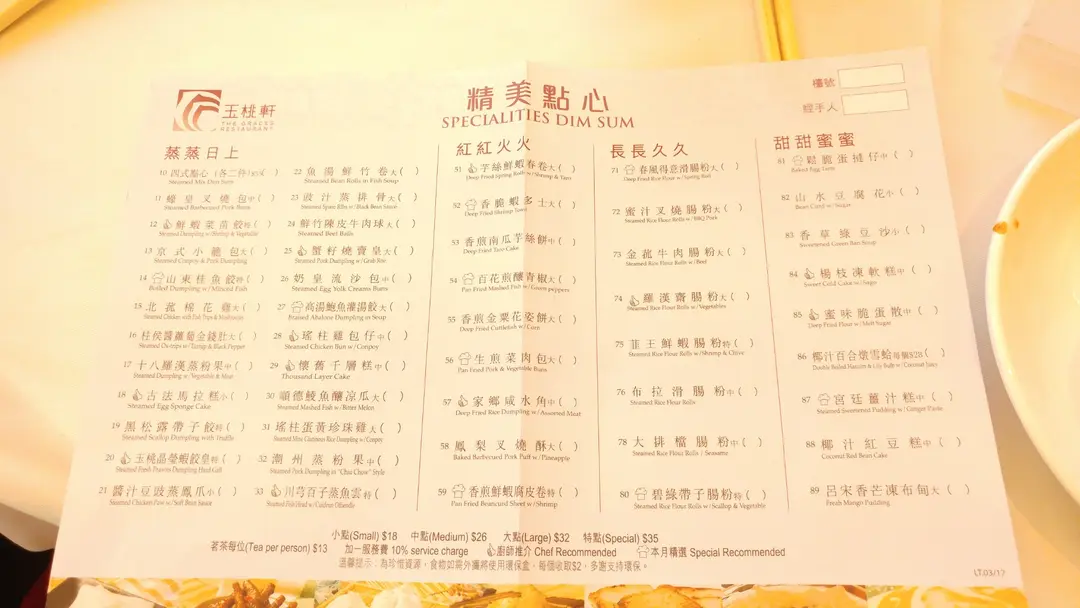 玉桃軒
THE GRACES
RESTAURANT
精美點心
SPECIALITIES DIM SUM
檯號
經手人
蒸蒸日上
10 四式點心 (各二件)
Steamed Mix Dim Sum
11 蠔皇叉燒包中( )
Steamed Barbecued Pork Buns
12 鮮蝦菜苗餃特( )
Steamed Dumpling w/Shrimp & Vegetable
13 京式小籠包大( )
Steamed Conpoy & Pork Dumpling
14 山東桂魚餃特( )
Boiled Dumpling w/ Minced Fish
15 北菰棉花雞大( )
16 柱侯醬蘿蔔金錢肚大( )
17 十八羅漢蒸粉果中( )
Steamed Dumpling w/Vegetable & Meat
18 古法馬拉糕小( )
Steamed Egg Sponge Cake
19 黑松露帶子餃特( )
Steamed Scallop Dumpling with Truffle
20 玉桃晶瑩蝦餃皇特( )
21 醬汁豆豉蒸鳳爪小( )
Steamed Chicken Paw w/Soft Bean Sauce
22 魚湯鮮竹卷大( )
Steamed Bean Rolls in Fish Soup
23 豉汁蒸排骨大( )
Steamed Spare Ribs w/Black Bean Sauce
24 鮮竹陳皮牛肉球大( )
Steamed Beef Balls
25 蟹籽燒賣皇大( )
Steamed Pork Dumpling w/Crab Roe
26 奶皇流沙包中( )
Steamed Egg Yolk Creamy Buns
27 高湯鮑魚灌湯餃大( )
Braised Abalone Dumpling in Soup
28 瑤柱雞包仔中( )
Steamed Chicken Bun w/Conpoy
29 懷舊千層糕中( )
Thousand Layer Cake
30 順德鯪魚釀涼瓜大( )
Steamed Mashed Fish w/Bitter Melon
31 瑤柱蛋黃珍珠雞大( )
Steamed Mini Glutinous Rice Dumpling w/Conpoy
32 潮州蒸粉果中( )
Steamed Pork Dumpling in "Chiu Chow" Style
33 川芎百子蒸魚雲特( )
紅紅火火
51 芋絲鮮蝦春卷大( )
Deep Fried Spring Rolls w/Shrimp & Taro
52 香脆蝦多士大( )
Deep Fried Shrimp Toast
53 香煎南瓜芋絲餅中( )
Deep Fried Taro Cake
54 百花煎釀青椒大( )
Pan Fried Mashed Fish w/Green peppers
55 香煎金粟花姿餅大( )
Deep Fried Cuttlefish w/Corn
56 生煎菜肉包大( )
Pan Fried Pork & Vegetable Buns
57 家鄉咸水角中( )
Deep Fried Rice Dumpling w/Assorted Meat
58 鳳梨叉燒酥大( )
Baked Barbecued Pork Puff w/Pineapple
59 香煎鮮蝦腐皮卷特( )
Pan Fried Beancurd Sheet w/Shrimp
長長久久
71 春風得意滑腸粉大( )
72 蜜汁叉燒腸粉大( )
Steamed Rice Flour Rolls w/BBQ Pork
73 金菰牛肉腸粉大( )
Steamed Rice Flour Rolls w/Beef
74 羅漢齋腸粉大( )
Steamed Rice Flour Rolls w/Vegetables
75 韮王鮮蝦腸粉特( )
Steamed Rice Flour Rolls w/Shrimp & Chive
76 布拉滑腸粉中( )
Steamed Rice Flour Rolls
78 大排檔腸粉中( )
Steamed Rice Flour Rolls / Sesame
80 碧綠帶子腸粉特( )
Steamed Rice Flour Rolls w/Scallop & Vegetable
甜甜蜜蜜
81 鬆脆蛋撻仔中( )
Baked Egg Tarts
82 山水豆腐花小( )
Bean Curd w/Sugar
83 香草綠豆沙小( )
Sweetened Green Bean Soup
84 楊枝凍軟糕中( )
Sweet Cold Cake w/Sago
85 蜜味脆蛋散中( )
Deep Fried Flour w/Melt Sugar
86 椰汁百合燉雪蛤每個$28( )
87 宮廷薑汁糕中( )
Steamed Sweetened Pudding w/Ginger Paste
88 椰汁紅豆糕中( )
Coconut Red Bean Cake
89 呂宋香芒凍布甸大( )
Fresh Mango Pudding
小點(Small) $18 中點(Medium) $26 大點(Large) $32 特點(Special) $35
茗茶每位(Tea per person) $13 加一服務費 10% service charge 廚師推介 Chef Recommended 本月精選 Special Recommended
溫馨提示：為珍惜資源，食物如需外攜將使用環保盒，每個收取$2，多謝支持環保。
LT.03/17